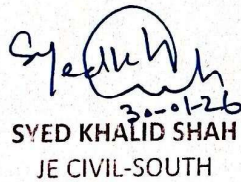 Syedkh
30-01-26
SYED KHALID SHAH
JE CIVIL-SOUTH